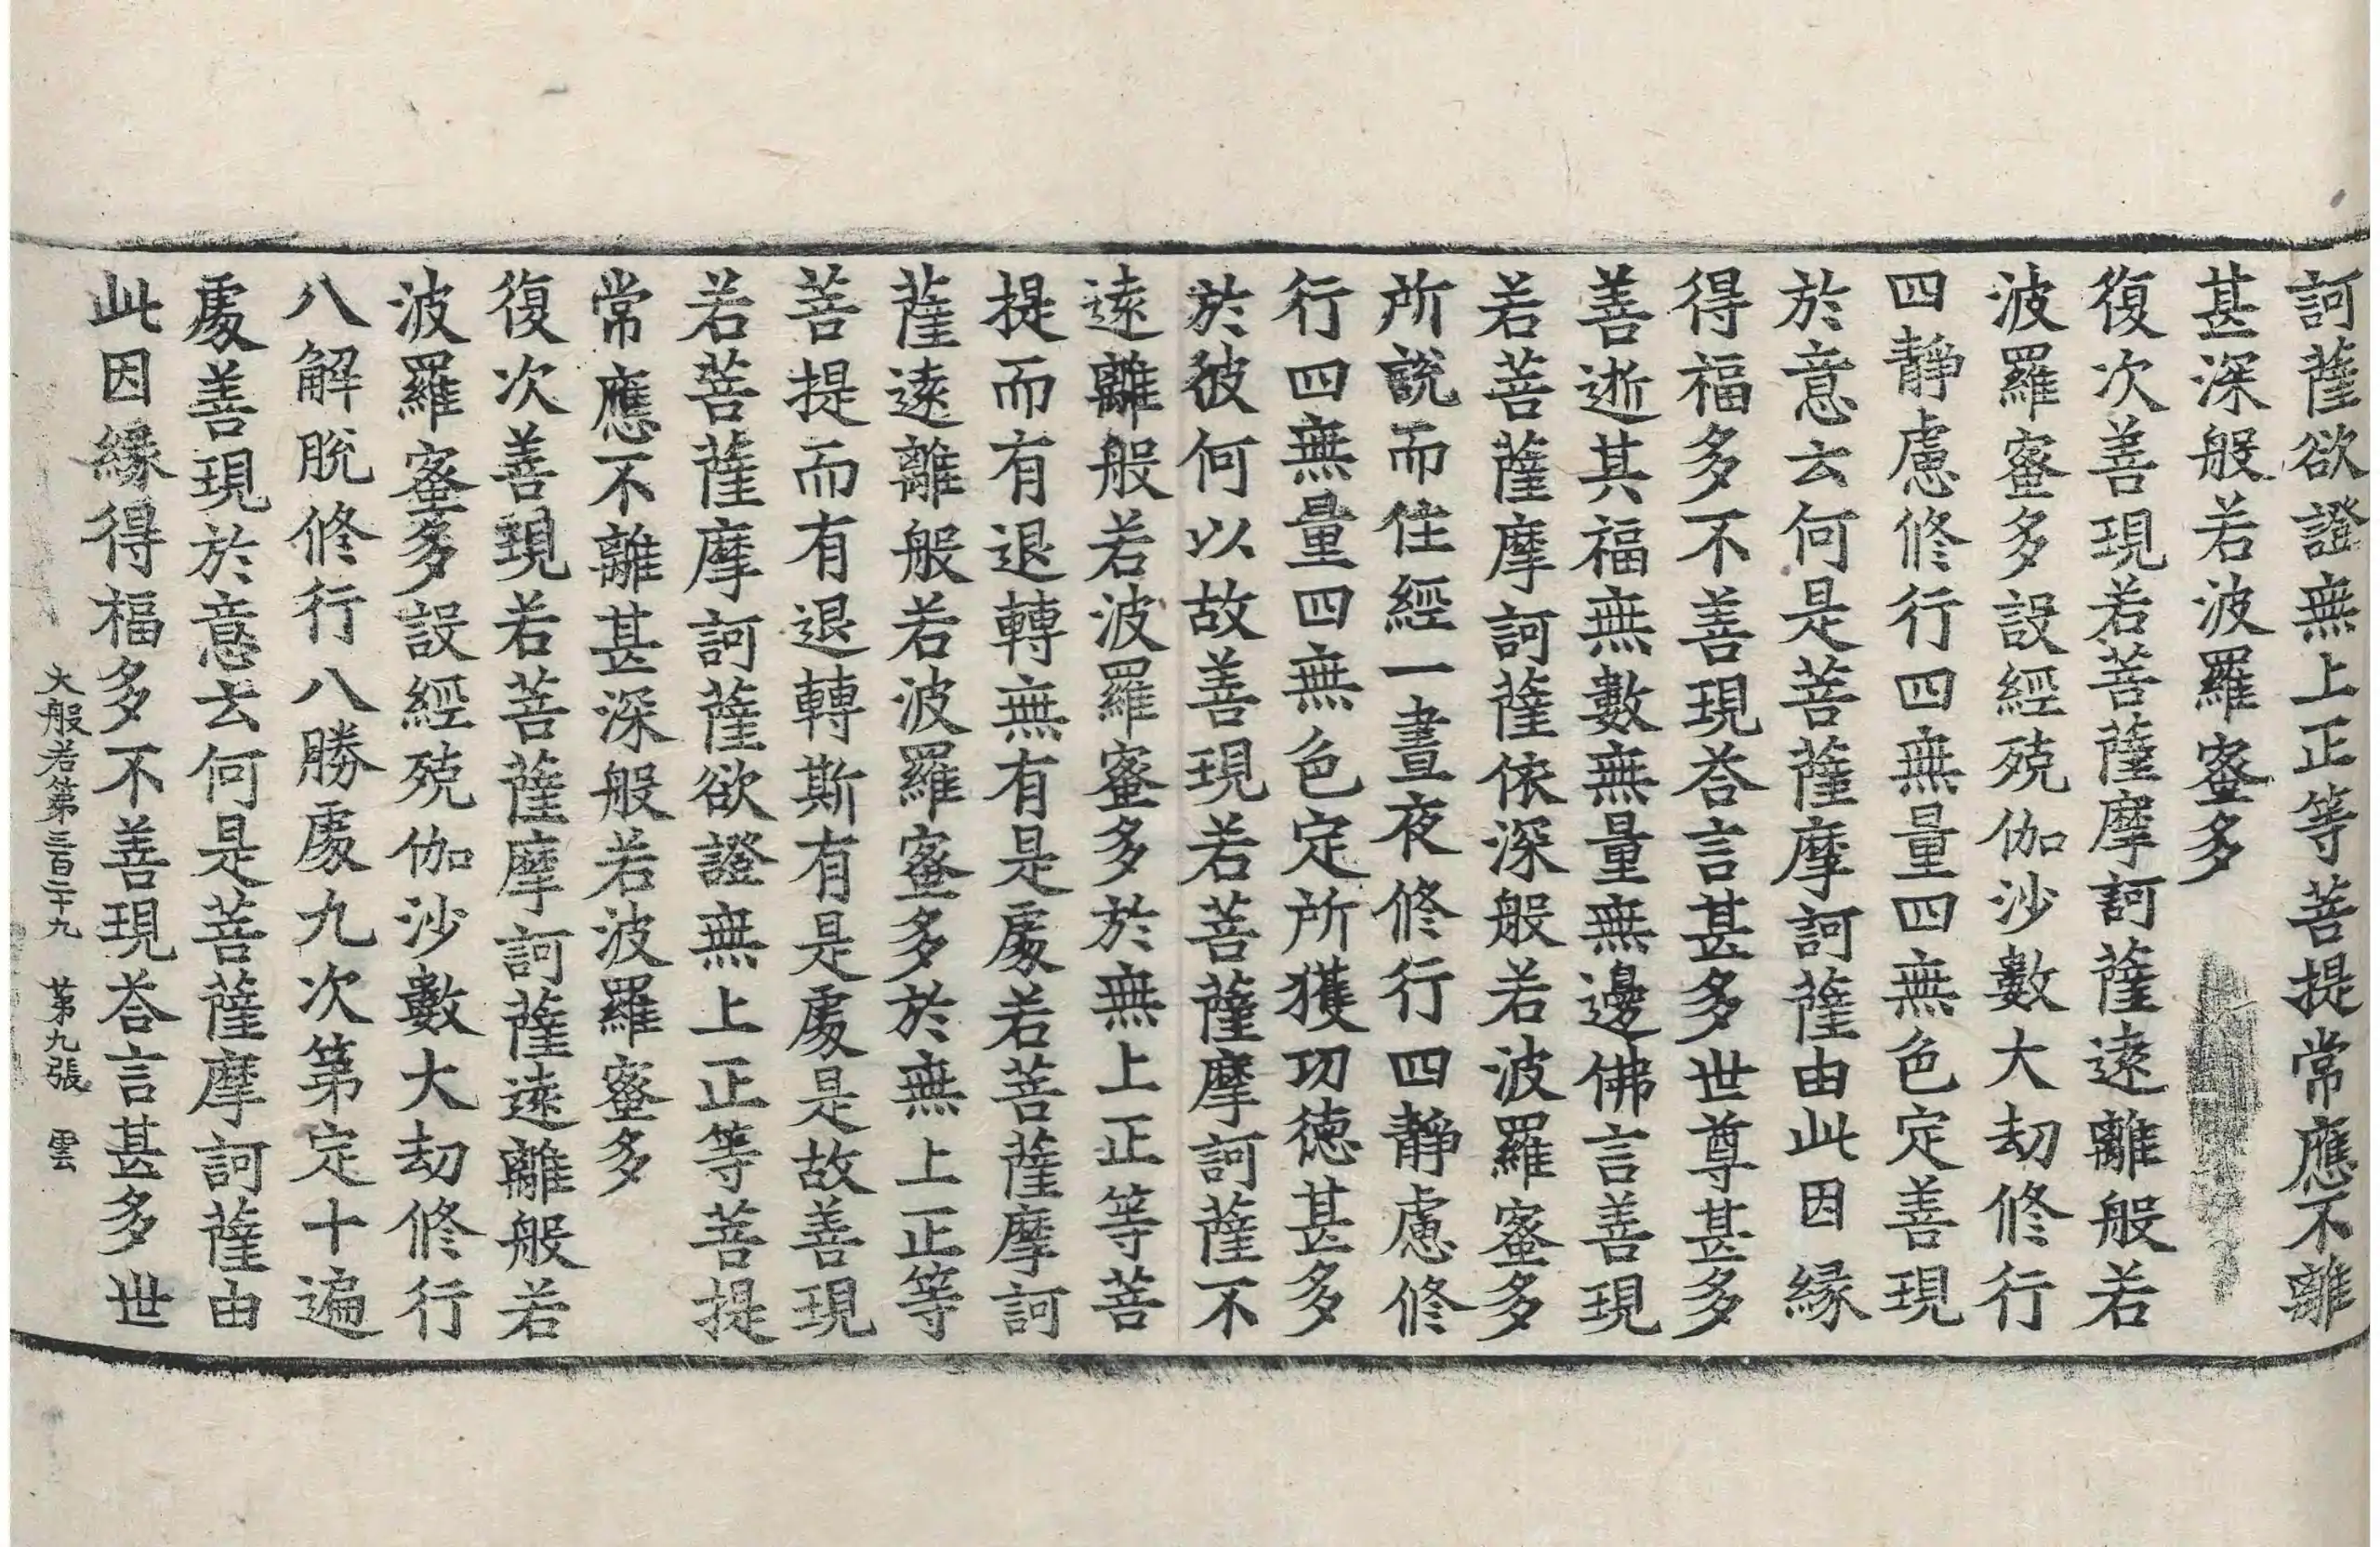 訶薩欲證無上正等菩提常應不離
甚深般若波羅蜜多
復次善現若菩薩摩訶薩遠離般若
波羅蜜多設經殑伽沙數大劫修行
四靜慮修行四無量四無色定善現
於意云何是菩薩摩訶薩由此因緣
得福多不善現荅言甚多世尊甚多
善逝其福無數無量無邊佛言善現
若菩薩摩訶薩依深般若波羅蜜多
所說而住經一晝夜修行四靜慮修
行四無量四無色定所獲功德甚多
於彼何以故善現若菩薩摩訶薩不
遠離般若波羅蜜多於無上正等菩
提而有退轉無有是處若菩薩摩訶
薩遠離般若波羅蜜多於無上正等
菩提而有退轉斯有是處是故善現
若菩薩摩訶薩欲證無上正等菩提
常應不離甚深般若波羅蜜多
復次善現若菩薩摩訶薩遠離般若
波羅蜜多設經殑伽沙數大劫修行
八解脫修行八勝處九次第定十遍
處善現於意云何是菩薩摩訶薩由
此因緣得福多不善現荅言甚多世
大般若第三百二十九 第九張 雲